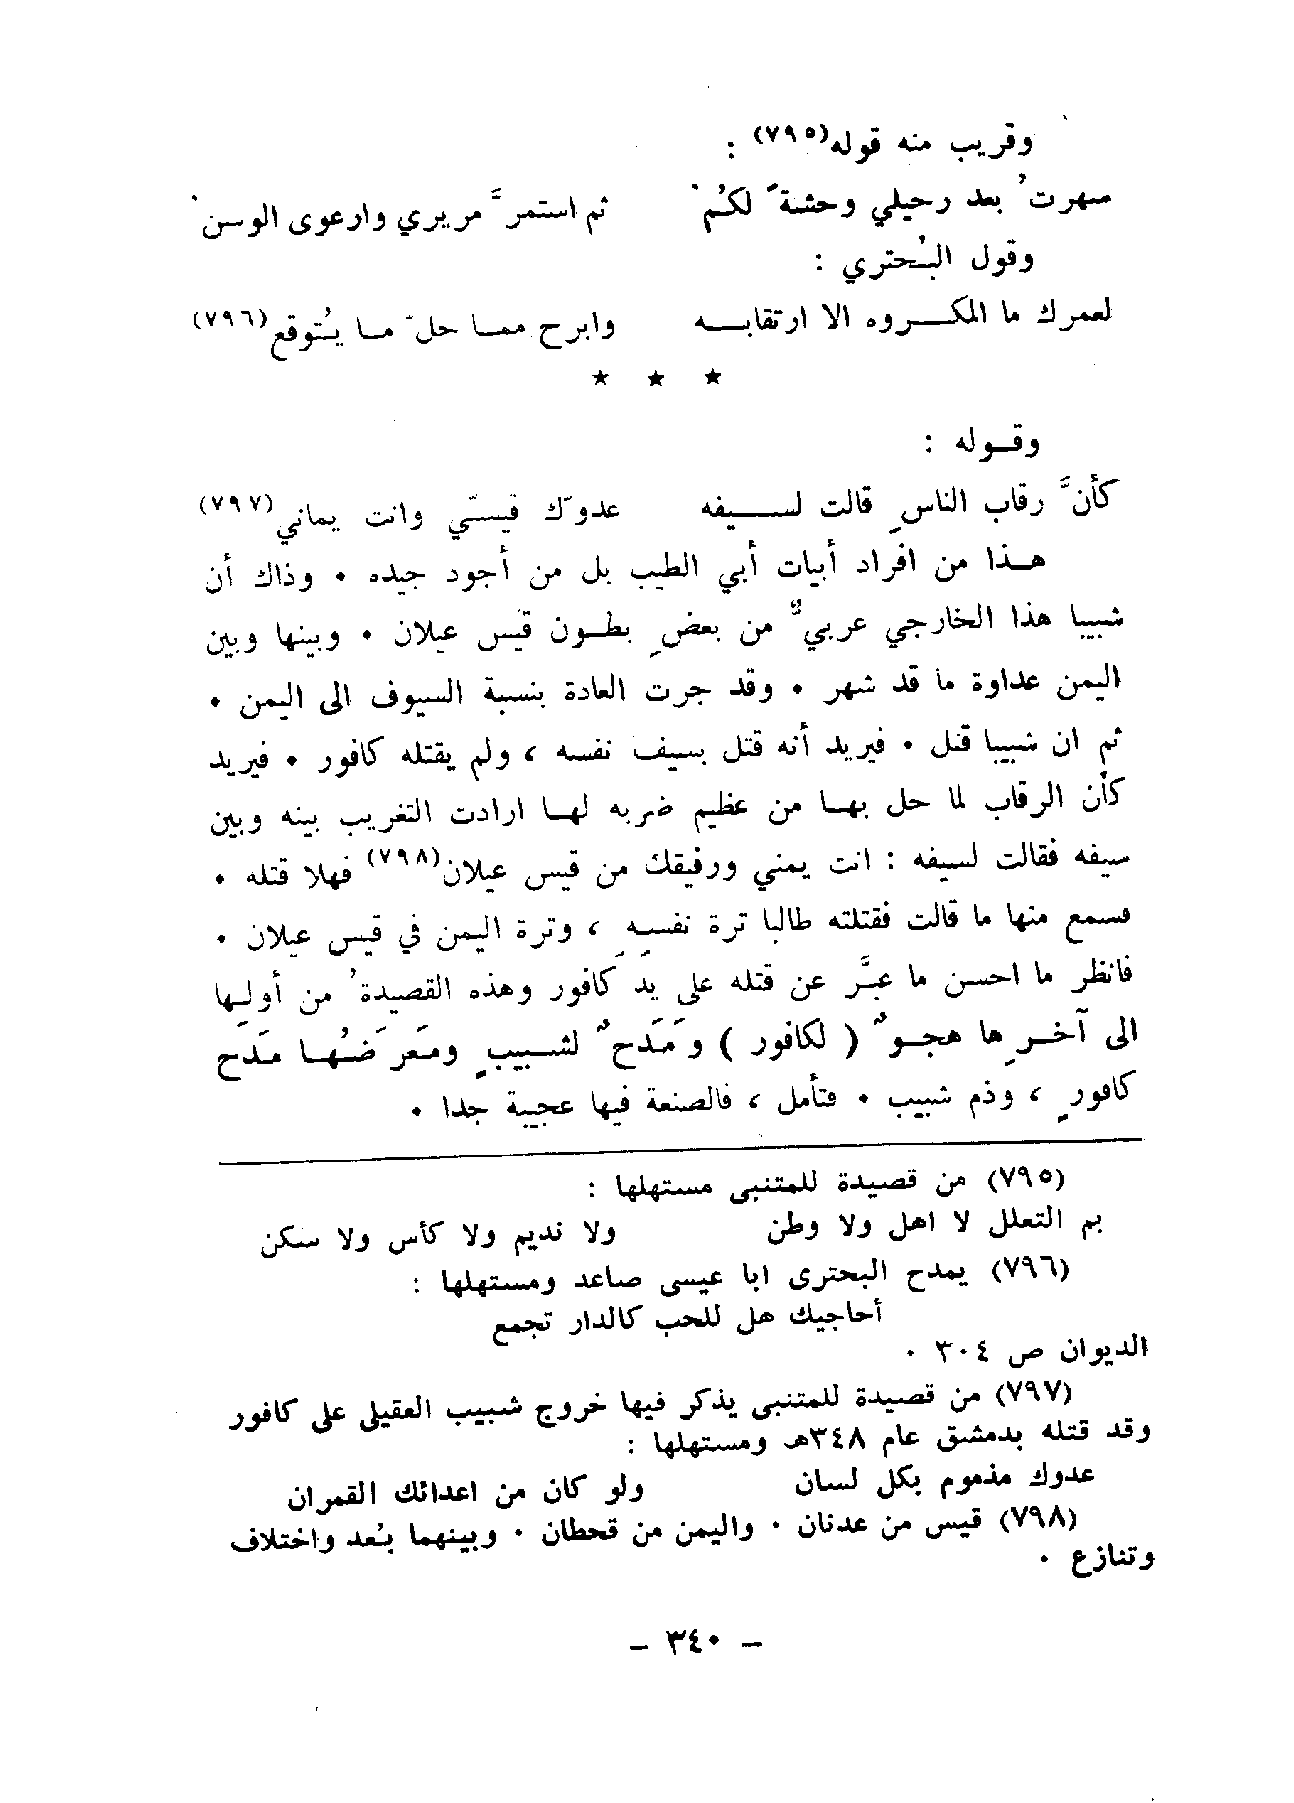 وقريب منه قوله(٧٩٥) :
سهرتُ بعد رحيلي وحشةً لكُمُ ثم استمرَّ مريري وارعوى الوسنُ
وقول البُحتري :
لعمرك ما المكـروه الا ارتقابـه وابرح ممـا حلّ مـا يُتوقع(٧٩٦)
★ ★ ★
وقـوله :
كأنَّ رقاب الناسِ قالت لسـيفه عدوّك قيسيّ وانت يماني(٧٩٧)
هـذا من افراد أبيات أبي الطيب بل من أجود جيده ٠ وذاك أن
شبيبا هذا الخارجي عربيٌّ من بعضِ بطـون قَيس عيلان ٠ وبينها وبين
اليمن عداوة ما قد شهر ٠ وقد جرت العادة بنسبة السيوف الى اليمن ٠
ثم ان شبيبا قتل ٠ فيريد أنه قتل بسيف نفسه ، ولم يقتله كافور ٠ فيريد
كأن الرقاب لما حل بهـا من عظيم ضربه لهـا ارادت التغريب بينه وبين
سيفه فقالت لسيفه : انت يمني ورفيقك من قيس عيلان(٧٩٨) فهلا قتله ٠
فسمع منها ما قالت فقتلته طالبا ترة نفسِهِ ، وترة اليمن في قيس عيلان ٠
فانظر ما احسن ما عبَّر عن قتله على يَدِ كافور وهذه القصيدةُ من أولِـها
الى آخـرِها هجـوٌ ( لكافور ) وَمَدحٌ لشـبيبٍ ومَعرَضُهـا مَدح
كافورٍ ، وذم شبيب ٠ فتأمل ، فالصنعة فيها عجيبة جدا ٠
(٧٩٥) من قصيدة للمتنبى مستهلها :
بم التعلل لا اهل ولا وطن ولا نديم ولا كأس ولا سكن
(٧٩٦) يمدح البحترى ابا عيسى صاعد ومستهلها :
أحاجيك هل للحب كالدار تجمع
الديوان ص ٣٠٤ ٠
(٧٩٧) من قصيدة للمتنبى يذكر فيها خروج شبيب العقيلى على كافور
وقد قتله بدمشق عام ٣٤٨هـ ومستهلها :
عدوك مذموم بكل لسان ولو كان من اعدائك القمران
(٧٩٨) قيس من عدنان ٠ واليمن من قحطان ٠ وبينهما بُعد واختلاف
وتنازع ٠
– ٣٤٠ –